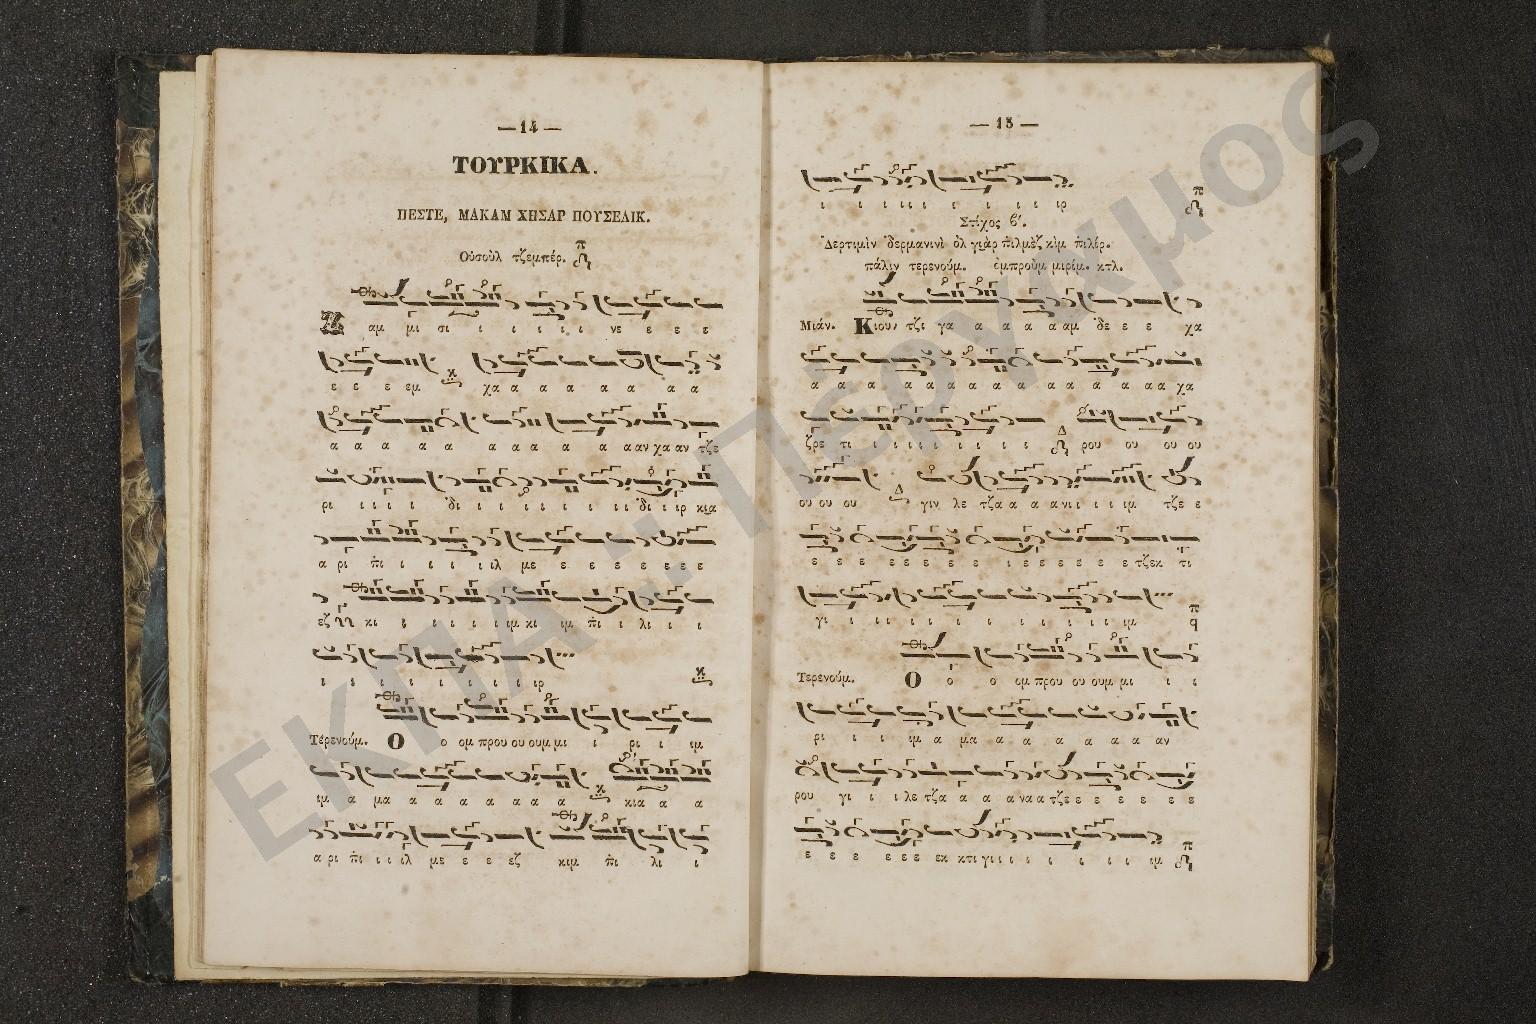 — 14 —
ΤΟΥΡΚΙΚΑ.
ΠΕΣΤΕ, ΜΑΚΑΜ ΧΗΣΑΡ ΠΟΥΣΕΛΙΚ.
Οὐσοὺλ τζεμπέρ.
αμ μι σι ι ι ι ι ι ι νε ε ε ε
ε ε ε εμ χα α α α α α α α
α α α α α α α α α α α α αν χα αν τζε
ρι ι ι ι ι δι ι ι ι ι ι ι ι ι δι ι ιρ κια
α ρι πι ι ι ι ι ιλ με ε ε ε ε ε ε ε
εζ κι ι ι ι ι ιμ κι ιμ πι ι λι ι ι
ι ι ι ι ι ι ι ι ιρ
Τέρενούμ. Ο ο ομ πρου ου ουμ μι ι ρι ι ιμ
ιμ α μα α α α α α α α κια α α
α ρι πι ι ι ιλ με ε ε εζ κιμ πι λι ι
— 15 —
ι ι ι ι ι ι ι ι ι ιρ
Στίχος β΄.
Δερτιμὶν δερμανινὶ ὀλ γιὰρ πιλμὲζ κὶμ πιλέρ.
πάλιν τερενούμ. ἐμπροὺμ μιρίμ. κτλ.
Μιάν. Κιου τζι γα α α α α αμ δε ε ε χα
α α α α α α α α α α α α α α α α χα
ζρε τι ι ι ι ι ι ι ι ι ρου ου ου ου
ου ου ου γιν λε τζα α α α νι ι ι ιμ τζε ε
ε ε ε ε ε ε ε ε ι ε ε ε ε ε ε τζεκ τι
γι ι ι ι ι ι ι ι ι ι ι ι ιμ
Τερενούμ. Ο ο ο ομ πρου ου ουμ μι ι ι
ρι ι ι ιμ α μα α α α α α α αν
ρου γι ι ι λε τζα α α α να α τζε ε ε ε ε ε ε
ε ε ε ε ε ε εκ κτι γι ι ι ι ι ι ι ι ιμ
ΕΚΠΑ
Πέργαμος